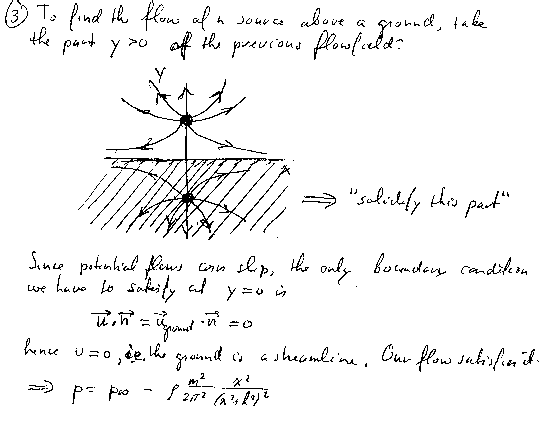 ③ To find the flow of a source above a ground, take
the part y>0 of the previous flowfield:
Y
x
⟹ "solidify this part"
Since potential flows can slip, the only boundary condition
we have to satisfy at y=0 is
u⃗·n⃗ = u⃗ground·n⃗ = 0
hence υ=0, i.e. the ground is a streamline. Our flow satisfies it.
⟹ p = p∞ - ρ m²/2π² x²/(x²+h²)²